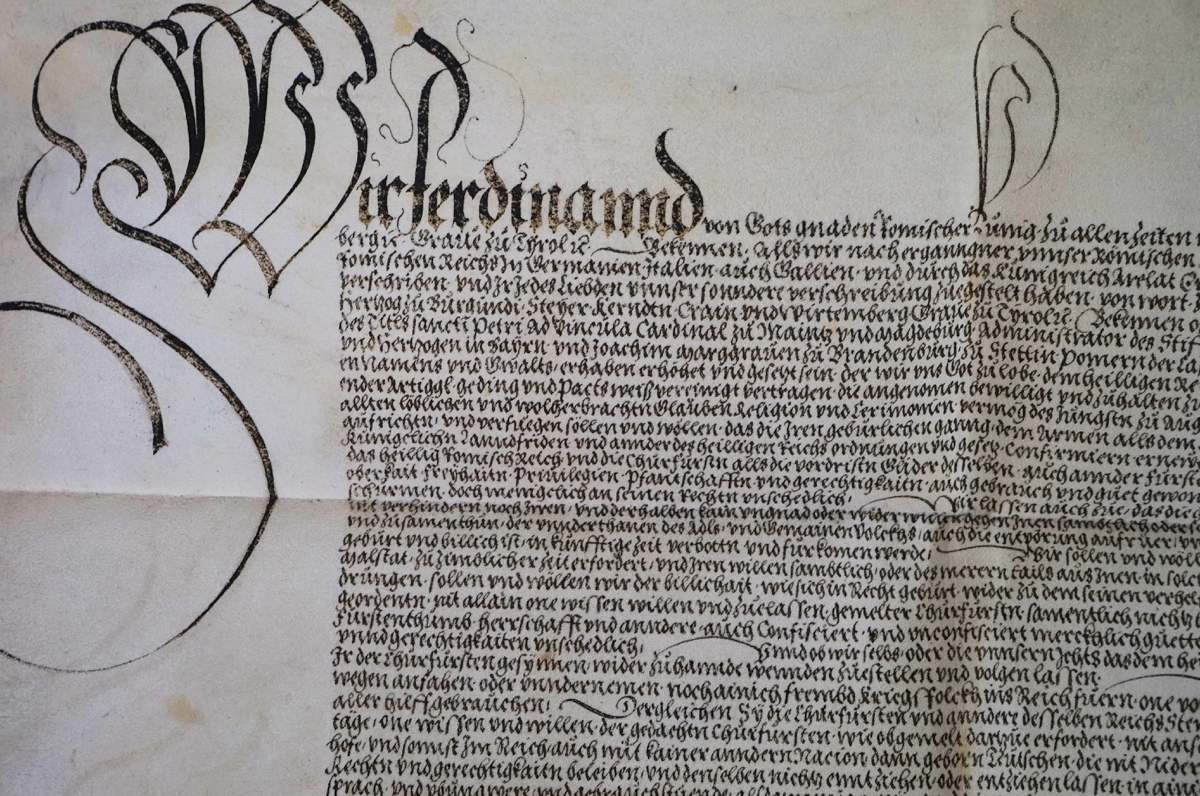 Wir Ferdinannd von Gots gnaden Romischer Kunig zu allen zeiten
bergic Graue zu Tyrol etc Bekennen, Alls wir nach erganngner vnnser Romischen
Romischen Reichs In Germanien Italien auch Gallien vnd durch das Kunigreich Arelat
verschriben vnd Ir jedes Liebden vnnser sonndere verschreibung zuegestelt haben von wort
Hertzog zu Burgundi Steyer Kernndtn Crain vnd Wirtemberg Graue zu Tyrol etc Bekennen
des Titls sancti Petri Ad Vincula Cardinal zu Maintz vnd Magdeburg Administrator des Stif
vnd Hertzogen in Bayrn vnd Joachim Marggrauen zu Brandenburg zu Stettin Pomern der
en Namens vnd Gwalts erhaben erhöhet vnd gesetzt sein der wir vns Got zu lobe dem heilligen Re
ender Artiggl geding vnd Pacts weiß vereinigt vertragen die angenomen bewilligt vnd zuhalten
allten löblichen vnd wolherbrachtn Glauben Religion vnd Cerimonien vermög des Jüngstn zu Aug
aufrichtn vnd verfuegen sollen vnd wöllen das die Iren gebürlichen ganng dem Armen alls dem
Künigclichn Lanndfriden vnd annder des heilligen Reichs ordnungen vnd gesetz Confirmiern ernew
das heillig Romisch Reich vnd die Churfürstn alls die vordristn Glider desselben auch annder Fürst
oberkait Freyhaitn Priuilegien Pfanntschafftn vnd gerechtigkaitn auch gebrauch vnd guet gewon
schirmen doch menigclich an seinen Rechtn vnschedlich. Wir lassen auch zue das die
nit verhindern noch Iren vnd derhalben kain vngnad oder widerwillen gegen Inen sambtlich oder
vnd zusamenthun der vnnderthanen des Adls vnd Gemainen Volckhs auch die empörung aufruer
geburt vnd billich ist in künfftige zeit verbottn vnd furkomen werde. Wir sollen vnd wöll
Malstat zu zimblicher zeit erfordert vnd Iren willen sambtlich oder des merern tails aus Inen in solch
drungen sollen vnd wöllen wir der billichait wie sich in Recht geburt wider zu dem seinen verhel
geordentn nit allain one wissen willen vnd zuelassen gemelter Churfürstn samentlich nicht
Fürstenthumb herrschafft vnd anndere auch Confisciert vnd vnconfisciert mercklich guett
vnnd gerechtigkaiten vnschedlich. Vnnd ob wir selbs oder die vnnsern Ichts das dem he
Ir der Churfürsten gesynnen wider zu hannde wennden zuestellen vnd volgen lassen.
wegen anfahen oder vnndernemen noch ainich frembd Kriegs Folckh ins Reich fuern one
aller hilff gebrauchen. Dergleichen Sy die Churfürsten vnd anndere desselben Reichs
tage one wissen vnd willen der gedachtn Churfürsten wie obgemelt darzue erfordert nit
hofe vnd sonnst Im Reich auch mit kainer anndern Nacion dann geborn Teütschen die mit Nider
Rechtn vnd gerechtigkaitn beleiben vnd denselben nichtz enntziehen oder entziehen lassen in